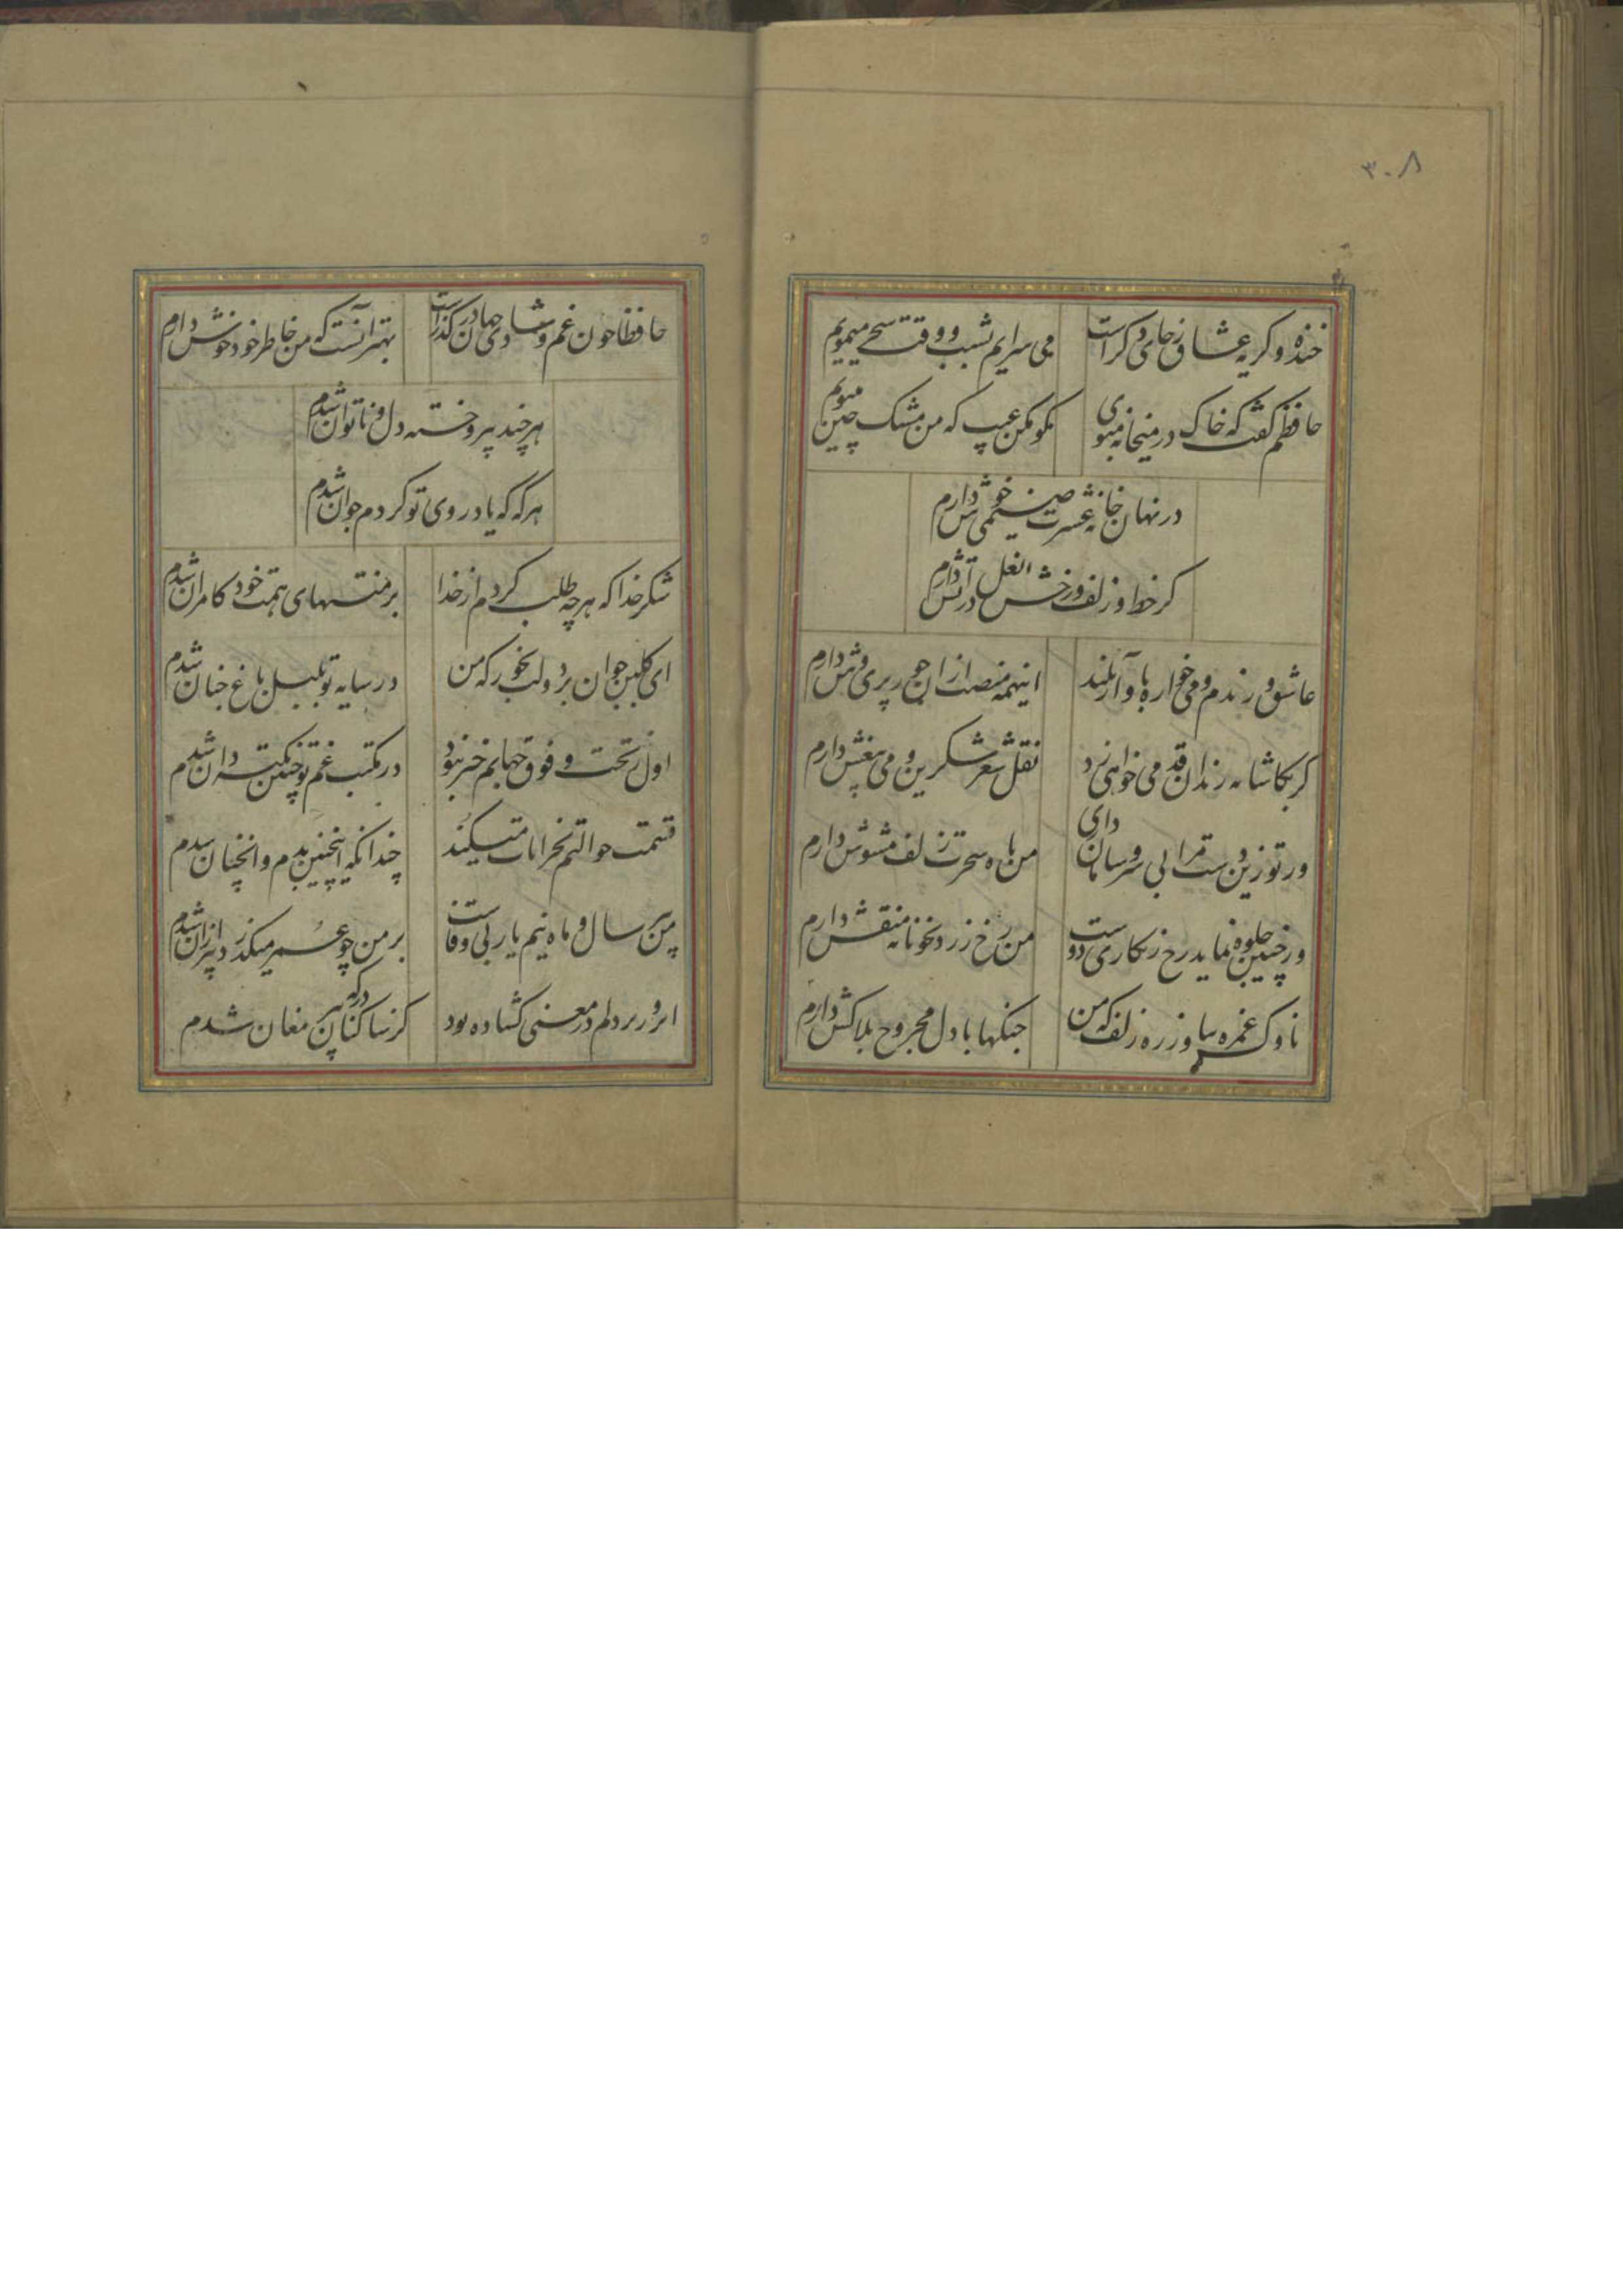 ۳۰۸
خنده و کریه عشاق ز جای دکراست
می سرایم بشب و وقت سحر میمویم
حافظم کفت که خاک در میخانه مبوی
کو مکن عیب که من مشک چین میبویم
در نهان خانه عشرت صنمی خوش دارم
کز خط و زلف و رخش نعل در آتش دارم
عاشق و رندم و می خواره باواز بلند
اینهمه منصب از آن حور پری وش دارم
کر بکاشانه رندان قدمی خواهی زد
نقل شعر شکرین و می بیغش دارم
ور تو زین دست مرا بی سر و سامان داری
من باه سحرت زلف مشوش دارم
ور چنین جلوه نماید رخ زنکاری دوست
من رخ زرد بخونابه منقش دارم
ناوک غمزه بیار و زره زلف که من
جنکها با دل مجروح بلاکش دارم
حافظا چون غم و شادی جهان در کذراست
بهتر آنست که من خاطر خود خوش دارم
هر چند پیر و خسته دل و ناتوان شدم
هر که که یاد روی تو کردم جوان شدم
شکر خدا که هر چه طلب کردم از خدا
بر منتهای همت خود کامران شدم
ای کلبن جوان بر دولت بخور که من
در سایه تو بلبل باغ جنان شدم
اول ز تحت و فوق جهانم خبر نبود
در مکتب غم تو چنین نکته دان شدم
قسمت حوالتم بخرابات میکند
چندانکه اینچنین بدم و انچنان شدم
من پیر سال و ماه نیم یار بی وفاست
بر من چو عمر میکذرد پیر از آن شدم
آنروز بر دلم در معنی کشاده بود
کز ساکنان درکه پیر مغان شدم